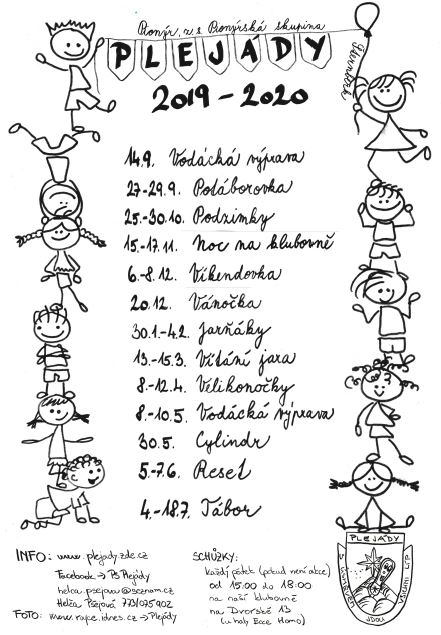 Pionýr, z.s. Pionýrská skupina
PLEJÁDY
2019-2020
14.9. Vodácká výprava
27-29.9. Potáborovka
25.-30.10. Podzimky
15.-17.11. Noc na klubovně
6.-8.12. Víkendovka
20.12. Vánočka
30.1.-4.2. Jarňáky
13.-15.3. Vítání jara
8.-12.4. Velikonočky
8.-10.5. Vodácká výprava
30.5. Cylindr
5.-7.6. Reset
4.-18.7. Tábor
INFO: www.plejady.zde.cz
Facebook → PS Plejády
helca.psejova@seznam.cz
Helča Pšejová 773/075902
FOTO: www.rajce.idnes.cz → Plejády
SCHŮZKY:
každý pátek (pokud není akce)
od 15:00 do 18:00
na naší klubovně
na Dvorské 13
(u haly Ecce Homo)
PLEJÁDY
JDOU